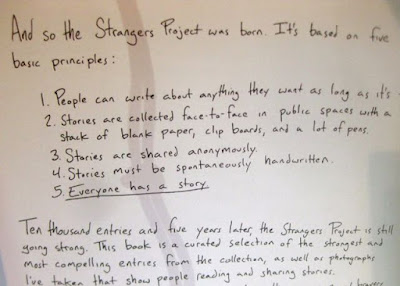 And so the Strangers Project was born. It's based on five
basic principles:
1. People can write about anything they want as long as it's
2. Stories are collected face-to-face in public spaces with a
stack of blank paper, clip boards, and a lot of pens.
3. Stories are shared anonymously.
4. Stories must be spontaneously handwritten.
5. Everyone has a story.
Ten thousand entries and five years later, the Strangers Project is still
going strong. This book is a curated selection of the strongest and
most compelling entries from the collection, as well as photographs
I've taken that show people reading and sharing stories.